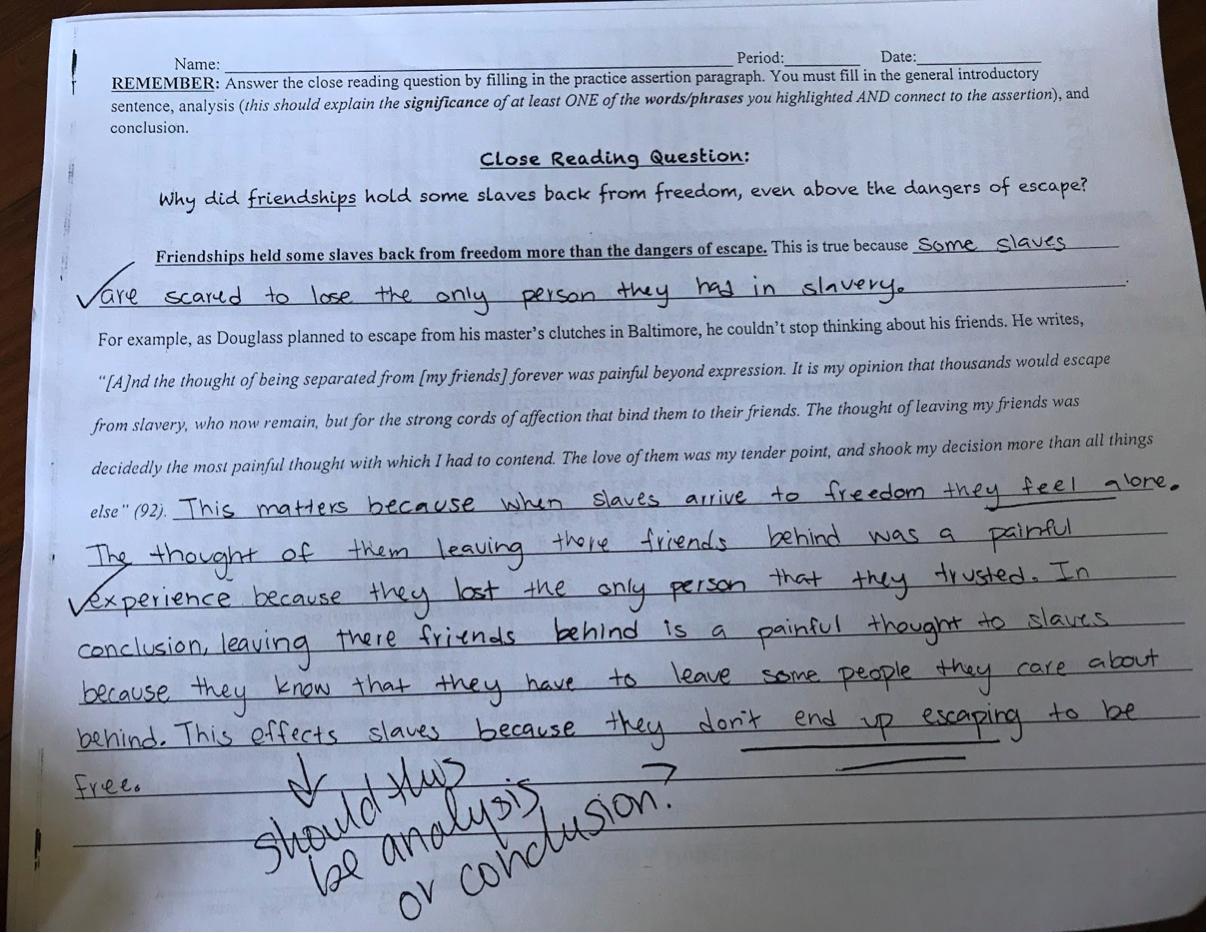 Name: Period: Date:
REMEMBER: Answer the close reading question by filling in the practice assertion paragraph. You must fill in the general introductory
sentence, analysis (this should explain the significance of at least ONE of the words/phrases you highlighted AND connect to the assertion), and
conclusion.
Close Reading Question:
Why did friendships hold some slaves back from freedom, even above the dangers of escape?
Friendships held some slaves back from freedom more than the dangers of escape. This is true because some slaves
are scared to lose the only person they had in slavery.
For example, as Douglass planned to escape from his master's clutches in Baltimore, he couldn't stop thinking about his friends. He writes,
"[A]nd the thought of being separated from [my friends] forever was painful beyond expression. It is my opinion that thousands would escape
from slavery, who now remain, but for the strong cords of affection that bind them to their friends. The thought of leaving my friends was
decidedly the most painful thought with which I had to contend. The love of them was my tender point, and shook my decision more than all things
else" (92). This matters because when slaves arrive to freedom they feel alone.
The thought of them leaving there friends behind was a painful
experience because they lost the only person that they trusted. In
conclusion, leaving there friends behind is a painful thought to slaves
because they know that they have to leave some people they care about
behind. This effects slaves because they don't end up escaping to be
free.
should this
be analysis
or conclusion?